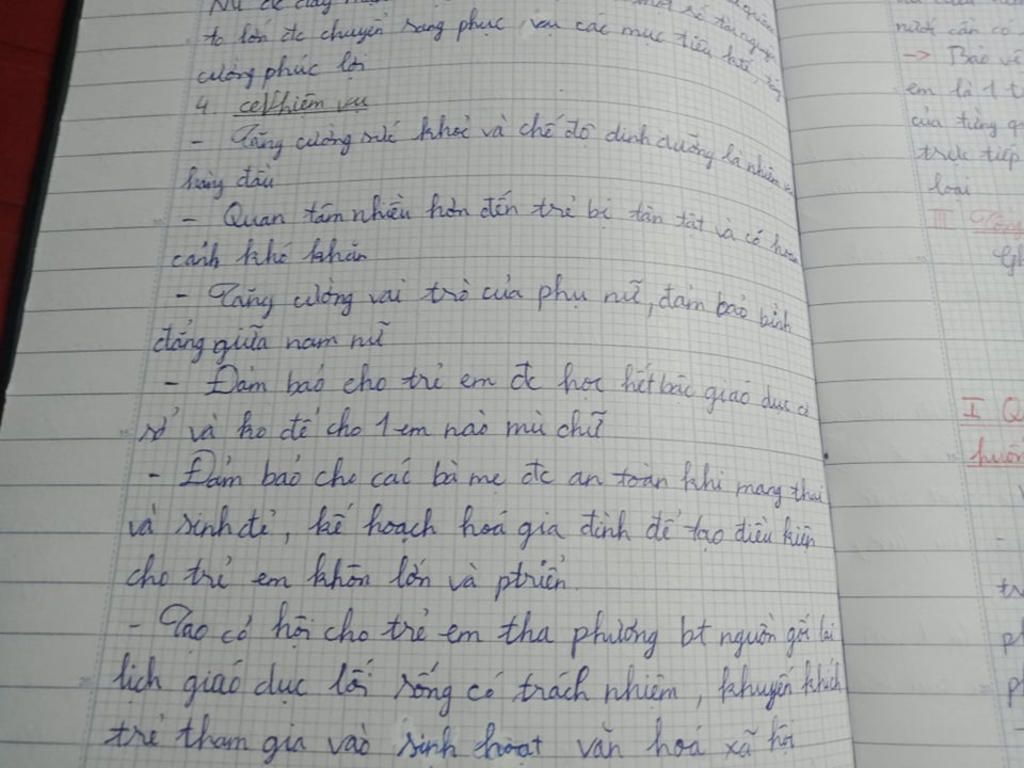 to lớn đc chuyển sang phục vụ các mục tiêu
cường phúc lợi
4. Nhiệm vụ
- Tăng cường sức khoẻ và chế độ dinh dưỡng là nhiệm vụ
hàng đầu
- Quan tâm nhiều hơn đến trẻ bị tàn tật và có hoàn
cảnh khó khăn
- Tăng cường vai trò của phụ nữ, đảm bảo bình
đẳng giữa nam nữ
- Đảm bảo cho trẻ em đc học hết bậc giáo dục cơ
sở và ko để cho 1 em nào mù chữ
- Đảm bảo cho các bà mẹ đc an toàn khi mang thai
và sinh đẻ, kế hoạch hoá gia đình để tạo điều kiện
cho trẻ em khôn lớn và ptriển.
- Tạo cơ hội cho trẻ em tha phương bt nguồn gốc lai
lịch giáo dục lối sống có trách nhiệm, khuyến khích
trẻ tham gia vào sinh hoạt văn hoá xã hội
nước cần có
→ Bảo vệ
em là 1
của từng
trực tiếp
loại
III
I Q